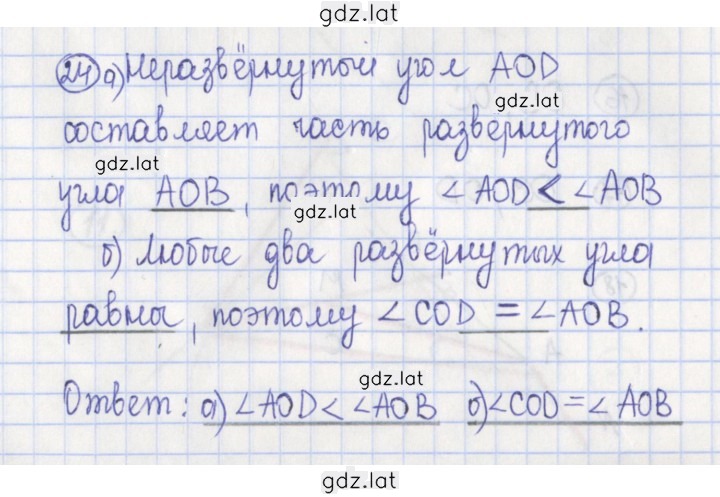 gdz.lat
24 а) Неразвёрнутый угол AOD
gdz.lat
составляет часть развернутого
gdz.lat
угла AOB, поэтому ∠AOD < ∠AOB
gdz.lat
б) Любые два развёрнутых угла
равны, поэтому ∠COD = ∠AOB.
gdz.lat
Ответ: а) ∠AOD < ∠AOB б) ∠COD = ∠AOB
gdz.lat